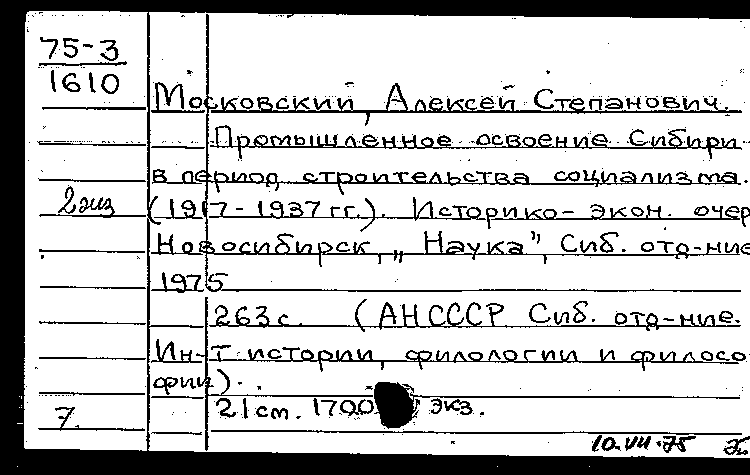 75-3
1610
Московский, Алексей Степанович.
Промышленное освоение Сибири
в период строительства социализма.
2 экз (1917-1937 гг.). Историко-экон. очер
Новосибирск, „Наука", Сиб. отд-ние
1975.
263 с. (АН СССР Сиб. отд-ние.
Ин-т истории, филологии и филосо
фии).
7. 21 см. 1700 экз.
10.VII.75